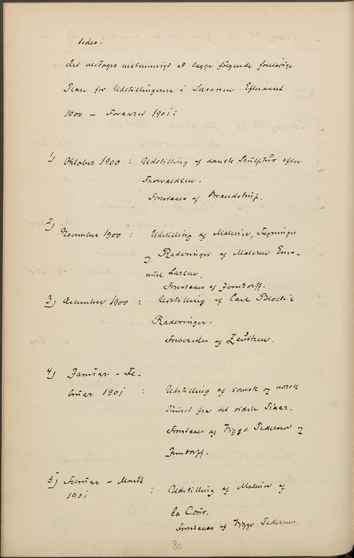 sedes.
det vedtoges enstemmigt at lægge følgende foreløbige
Plan for Udstillingerne i Sæsonen Efteraaret
1900 - Foraaret 1901:
1) Oktober 1900 : Udstilling af dansk Skulptur efter
Thorvaldsen.
Forestaaes af Brandstrup.
2) November 1900 : Udstilling af Malerier, Tegninger
og Raderinger af Maleren Ema-
nuel Larsen.
Forestaaes af Jerndorff.
3) December 1900 : Udstilling af Carl Bloch's
Raderinger.
af Zeuthen.
4) Januar - Fe-
bruar 1901 : Udstilling af svensk og norsk
Kunst fra det sidste Tiaar.
Forestaaes af Viggo Pedersen og
Jerndorff.
5) Februar - Marts
1901 : Udstilling af Malerier af
la Cour.
Forestaaes af Viggo Pedersen.